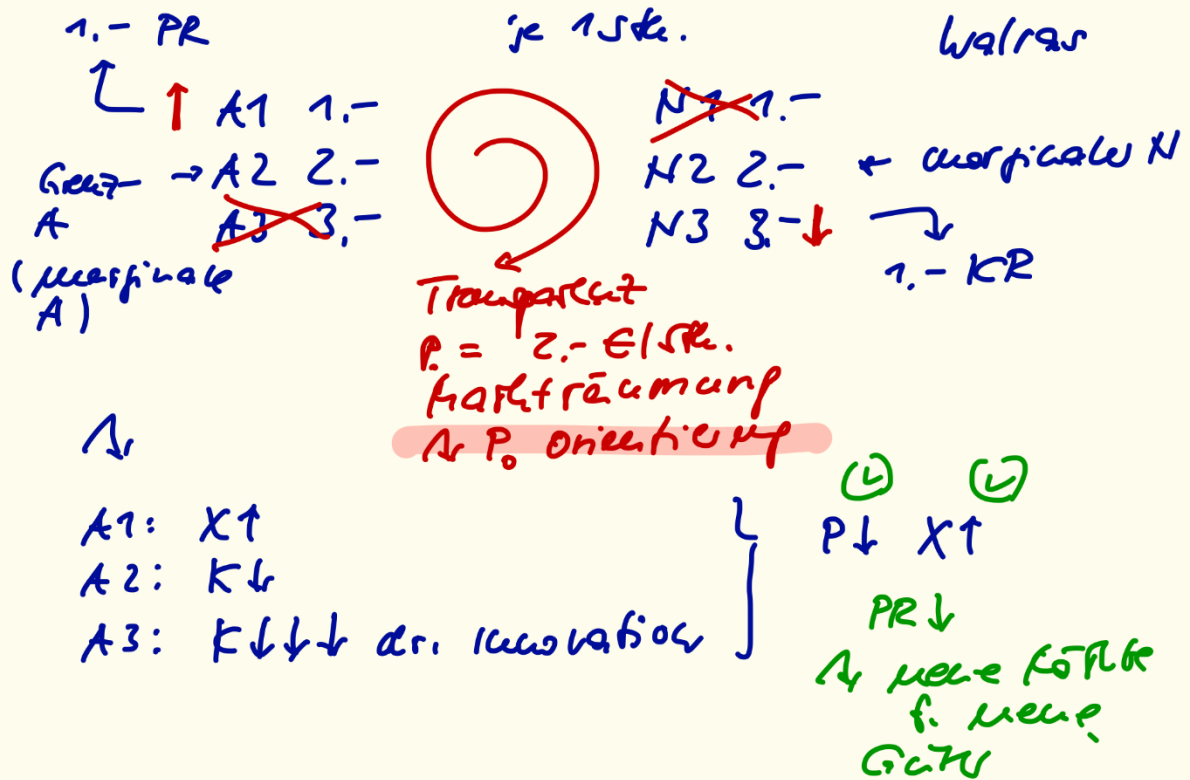 1.- PR je 1 Stk. Walras
↑ A1 1.- N1 1.-
Grenz- → A2 2.- N2 2.- ← marginaler N
A A3 3.- N3 3.- ↓
(marginale 1.- KR
A)
Transparenz
P. = 2.- €/Stk.
Markträumung
P. orientierung
A1: X↑
A2: K↓
A3: K↓↓↓ dr. Innovation
P↓ X↑
PR↓
neue Märkte
f. neue
Güter